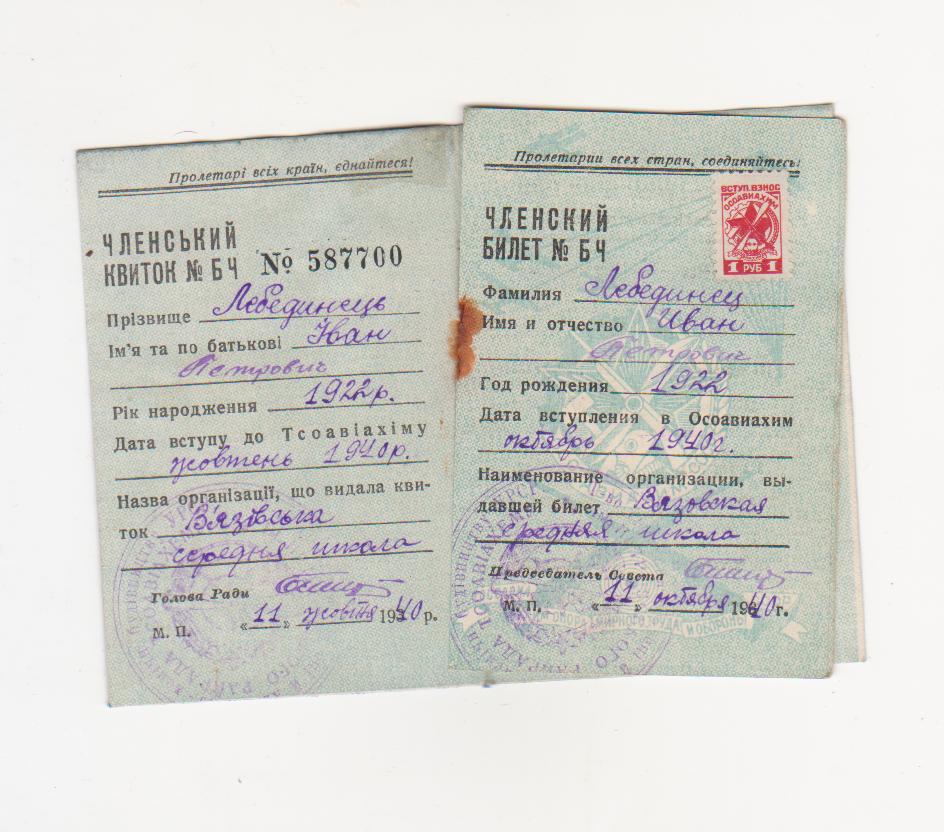 Пролетарі всіх країн, єднайтеся!
ЧЛЕНСЬКИЙ
КВИТОК № БЧ № 587700
Прізвище Лєбединець
Ім'я та по батькові Іван
Пєтрович
Рік народження 1922 р.
Дата вступу до Тсоавіахіму
жовтень 1940 р.
Назва організації, що видала кви-
ток В'язівська
середня школа
Голова Ради
М. П. «11» жовтня 1940 р.
Пролетарии всех стран, соединяйтесь!
ЧЛЕНСКИЙ
БИЛЕТ № БЧ
ВСТУП. ВЗНОС
ОСОАВИАХИМ
1 РУБ 1
Фамилия Лебединец
Имя и отчество Иван
Петрович
Год рождения 1922
Дата вступления в Осоавиахим
октябрь 1940 г.
Наименование организации, вы-
давшей билет Вязовская
средняя школа
Председатель Совета
М. П. «11» октября 1940 г.
МИРНОГО ТРУДА И ОБОРОНЫ